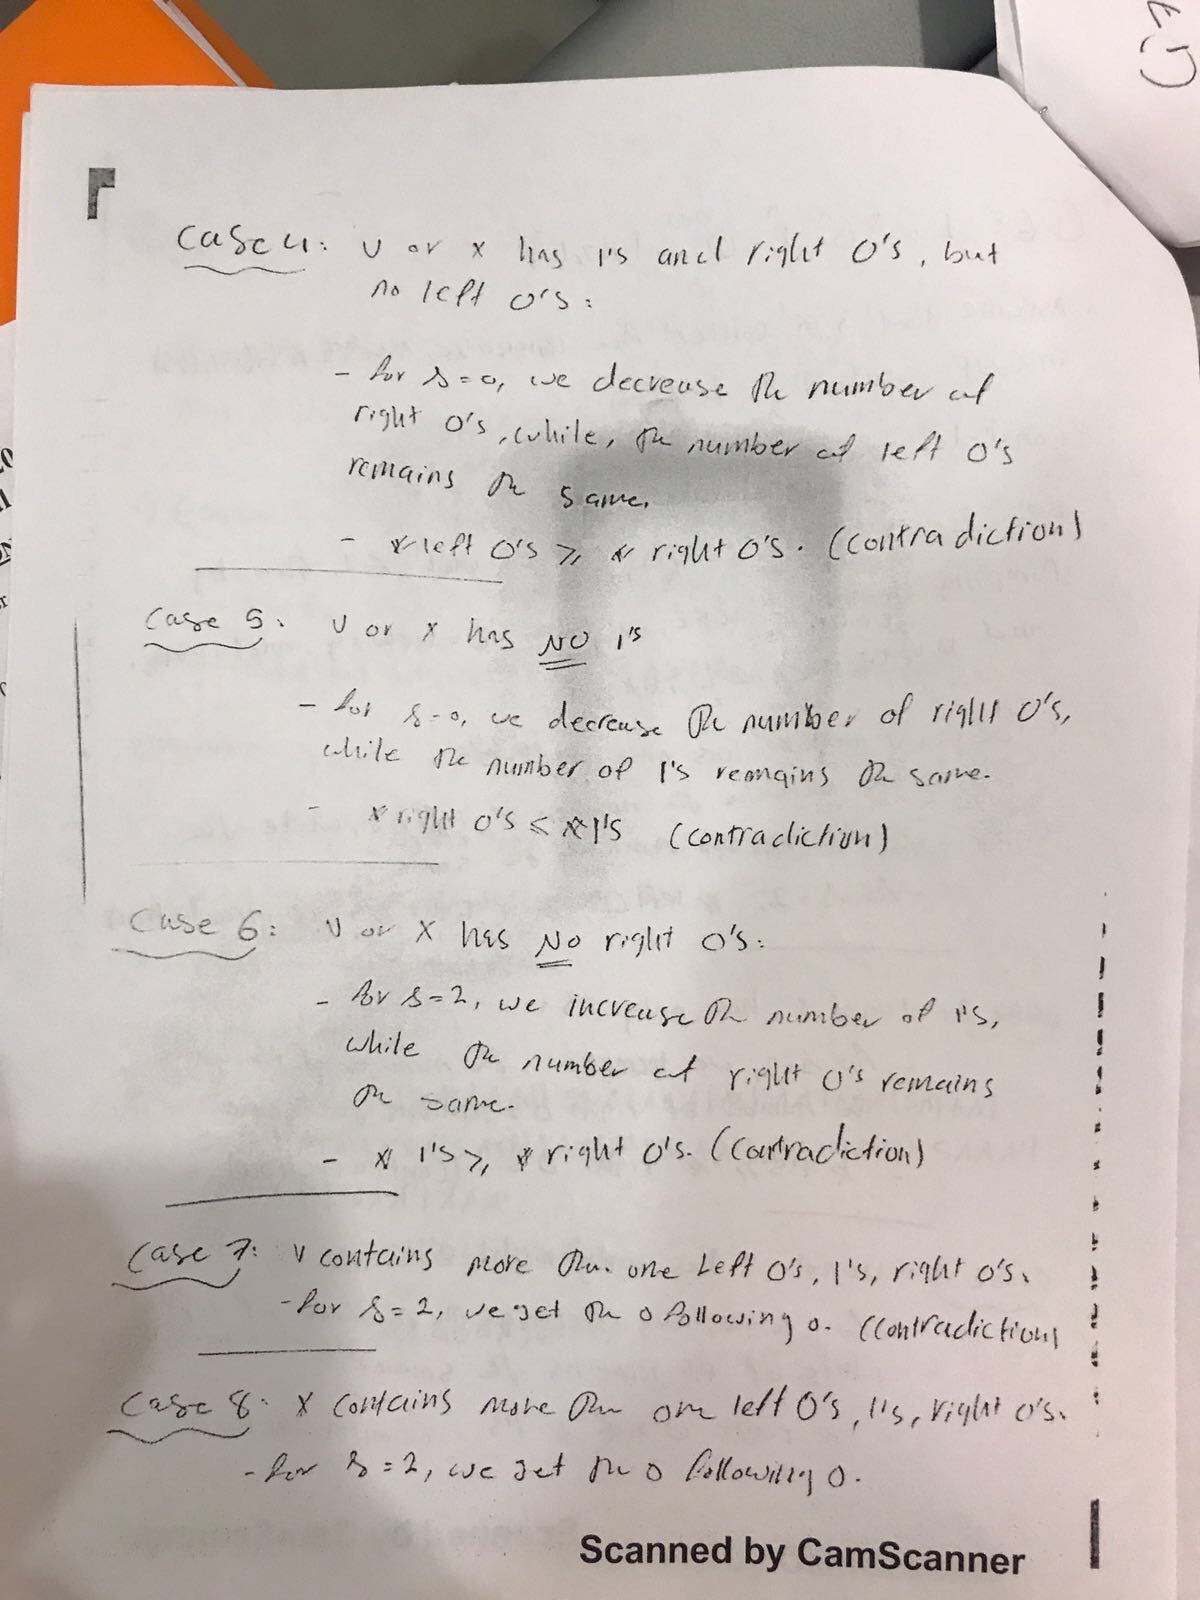 Case 4: v or x has 1's and right 0's, but
no left 0's:
- for s=0, we decrease the number of
right 0's, while, the number of left 0's
remains the same.
- * left 0's ≥ * right 0's. (contradiction)
Case 5: v or x has NO 1's
- for s=0, we decrease the number of right 0's,
while the number of 1's remains the same.
- * right 0's ≤ * 1's (contradiction)
Case 6: v or x has NO right 0's:
- for s=2, we increase the number of 1's,
while the number of right 0's remains
the same.
- * 1's ≥ * right 0's. (contradiction)
Case 7: v contains more than one left 0's, 1's, right 0's.
- for s=2, we get the 0 following 0. (contradiction)
Case 8: x contains more than one left 0's, 1's, right 0's.
- for s=2, we get the 0 following 0.
Scanned by CamScanner